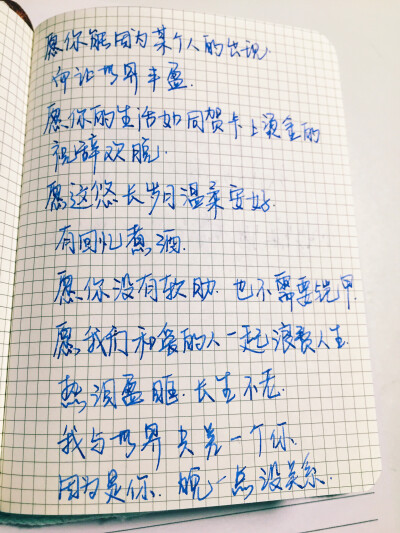 愿你能因为某个人的出现
而让世界丰盈.
愿你的生活如同贺卡上烫金的
祝辞欢脱.
愿这悠长岁月温柔安好.
有回忆煮酒.
愿你没有软肋.也不需要铠甲.
愿我们和爱的人一起浪费人生.
热泪盈眶.长生不老.
我与世界只差一个你.
因为是你.晚一点没关系.